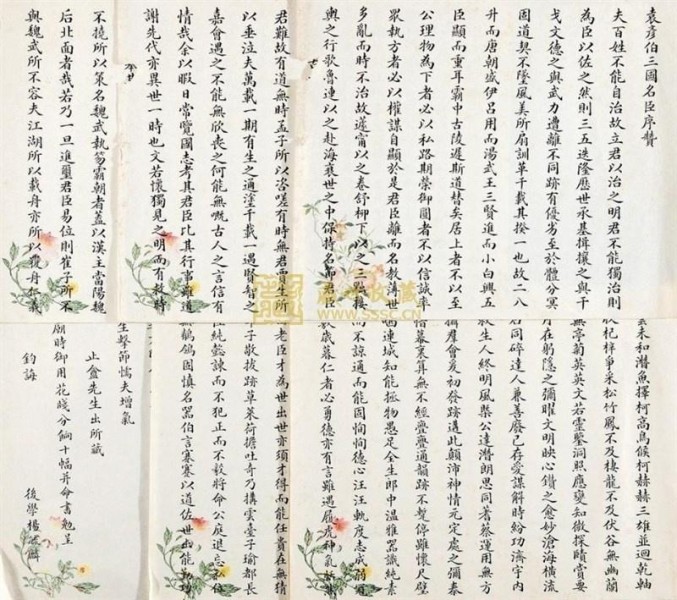 袁彥伯三國名臣序贊
夫百姓不能自治故立君以治之明君不能獨治則
為臣以佐之然則三五迭隆歷世承基揖讓之與干
戈文德之與武力遭離不同跡有優劣至於體分冥
固道契不墜風美所扇訓革千載其揆一也故二八
升而唐朝盛伊呂用而湯武王三賢進而小白興五
臣顯而重耳霸中古陵遲斯道替矣居上者不以至
公理物為下者必以私路期榮御圓者不以信誠率
眾執方者必以權謀自顯於是君臣離而名教薄世
多亂而時不治故蘧甯以之卷舒柳下以之三黜接
輿之行歌魯連以之赴海衰世之中保持名節君臣
君難故有道無時孟子所以咨嗟有時無君賈生所
以垂泣夫萬載一期有生之通塗千載一遇賢智之
嘉會遇之不能無欣喪之何能無慨古人之言信有
情哉余以暇日常覽國志考其君臣比其行事雖道
謝先代亦異世一時也文若懷獨見之明而有救時
不撓所以策名魏武執笏霸朝者蓋以漢主當陽魏
后北面者哉若乃一旦進璽君臣易位則崔子所不
與魏武所不容夫江湖所以載舟亦所以覆舟仁義
未和潛魚擇柯高鳥候柯赫赫三雄並迴乾軸
收杞梓爭采松竹鳳不及棲龍不及伏谷無幽蘭
無亭菊英英文若靈鑒洞照應變知微探賾賞要
月在躬隱之彌曜文明映心鑽之愈妙滄海橫流
石同碎達人兼善廢己存愛謀解時紛功濟宇內
救生人終明風槩公達潛朗思同蓍蔡運用無方
攝群會爰初發跡遘此顛沛神情元定處之彌泰
愔幕裏算無不經亹亹通韻跡不暫停雖懷尺璧
連城知能拯物愚足全生郎中溫雅器識純素
而不諒通而能固恂恂德心汪汪軌度志成弱冠
敷歲暮仁者必勇德亦有言雖遇履虎神氣恬然
老臣才為世出世亦須才得而能任貴在無猜
子敬拔跡草萊荷擔吐奇乃構雲臺子瑜都長
純懿諫而不犯正而不毅將命公庭退忘私位
無鶺鴒固慎名器伯言謇謇以道佐世出能勤功
生擊節懦夫增氣
止盦先生出所藏
廟時御用花牋分餉十幅并命書勉呈
鈞誨
後學楊
www.sssc.cn